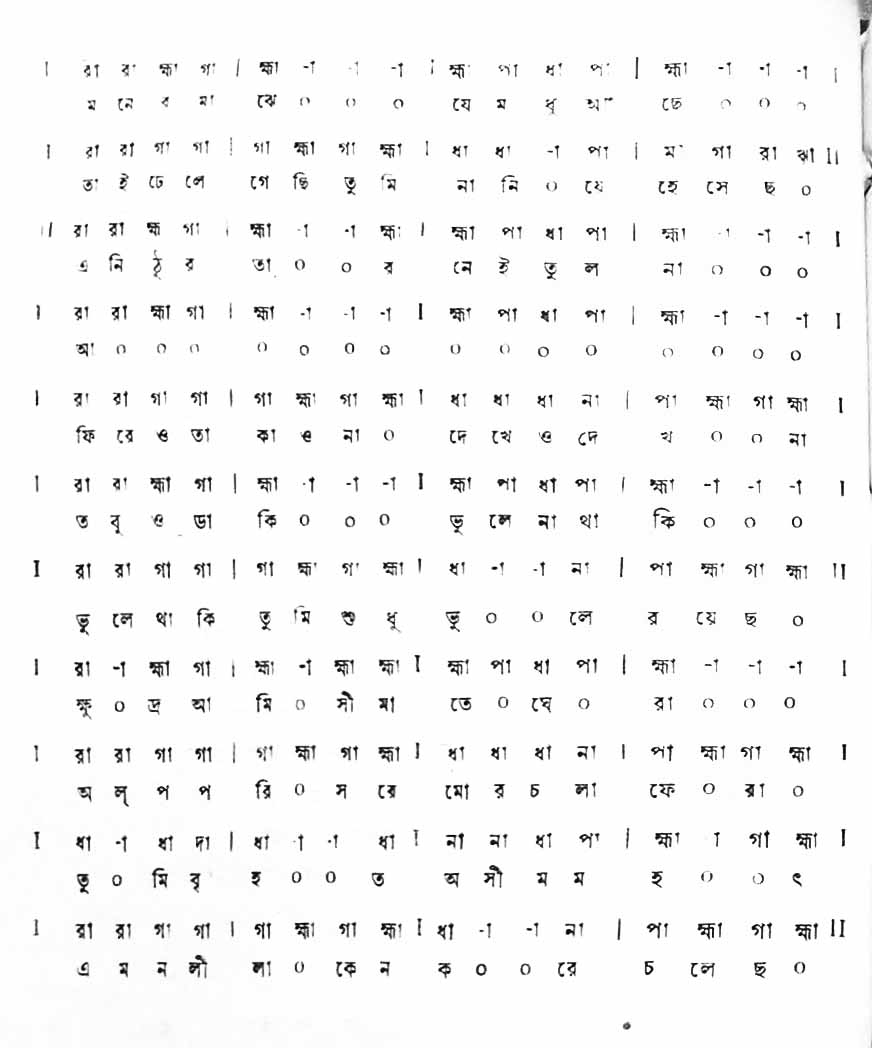 I রা রা হ্মা গা | হ্মা -া -া -া I হ্মা পা ধা পা | হ্মা -া -া -া I
ম নে র মা ঝে ০ ০ ০ যে ম ধু আ ছে ০ ০ ০
I রা রা গা গা | গা হ্মা গা হ্মা I ধা ধা -া পা | মা গা রা ঋা II
তা ই ঢে লে গে ছি তু মি না নি ০ যে হে সে ছ ০
II রা রা হ্ম গা | হ্মা -া -া হ্মা I হ্মা পা ধা পা | হ্মা -া -া -া I
এ নি ঠু র তা ০ ০ র নে ই তু ল না ০ ০ ০
I রা রা হ্মা গা | হ্মা -া -া -া I হ্মা পা ধা পা | হ্মা -া -া -া I
আ ০ ০ ০ ০ ০ ০ ০ ০ ০ ০ ০ ০ ০ ০ ০
I রা রা গা গা | গা হ্মা গা হ্মা I ধা ধা ধা না | পা হ্মা গা হ্মা I
ফি রে ও তা কা ও না ০ দে খে ও দে খ ০ ০ না
I রা রা হ্মা গা | হ্মা -া -া -া I হ্মা পা ধা পা | হ্মা -া -া -া I
ত বু ও ডা কি ০ ০ ০ ভু লে না থা কি ০ ০ ০
I রা রা গা গা | গা হ্মা গা হ্মা I ধা -া -া না | পা হ্মা গা হ্মা II
ভু লে থা কি তু মি শু ধু ভু ০ ০ লে র য়ে ছ ০
I রা -া হ্মা গা | হ্মা -া হ্মা হ্মা I হ্মা পা ধা পা | হ্মা -া -া -া I
ক্ষু ০ দ্র আ মি ০ সী মা তে ০ ঘে ০ রা ০ ০ ০
I রা রা গা গা | গা হ্মা গা হ্মা I ধা ধা ধা না | পা হ্মা গা হ্মা I
অ ল্ প প রি ০ স রে মো র চ লা ফে ০ রা ০
I ধা -া ধা দা | ধা -া -া ধা I না না ধা পা | হ্মা -া গা হ্মা I
তু ০ মি বৃ হ ০ ০ ত অ সী ম ম হ ০ ০ ৎ
I রা রা গা গা | গা হ্মা গা হ্মা I ধা -া -া না | পা হ্মা গা হ্মা II
এ ম ন লী লা ০ কে ন ক ০ ০ রে চ লে ছ ০